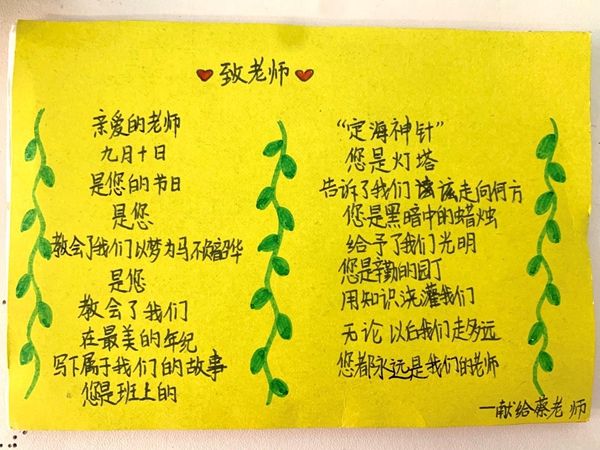 致老师
亲爱的老师
九月十日
是您的节日
是您
教会了我们以梦为马不负韶华
是您
教会了我们
在最美的年纪
写下属于我们的故事
您是班上的
“定海神针”
您是灯塔
告诉了我们该该走向何方
您是黑暗中的蜡烛
给予了我们光明
您是辛勤的园丁
用知识浇灌我们
无论以后我们走多远
您都永远是我们的老师
一献给蔡老师